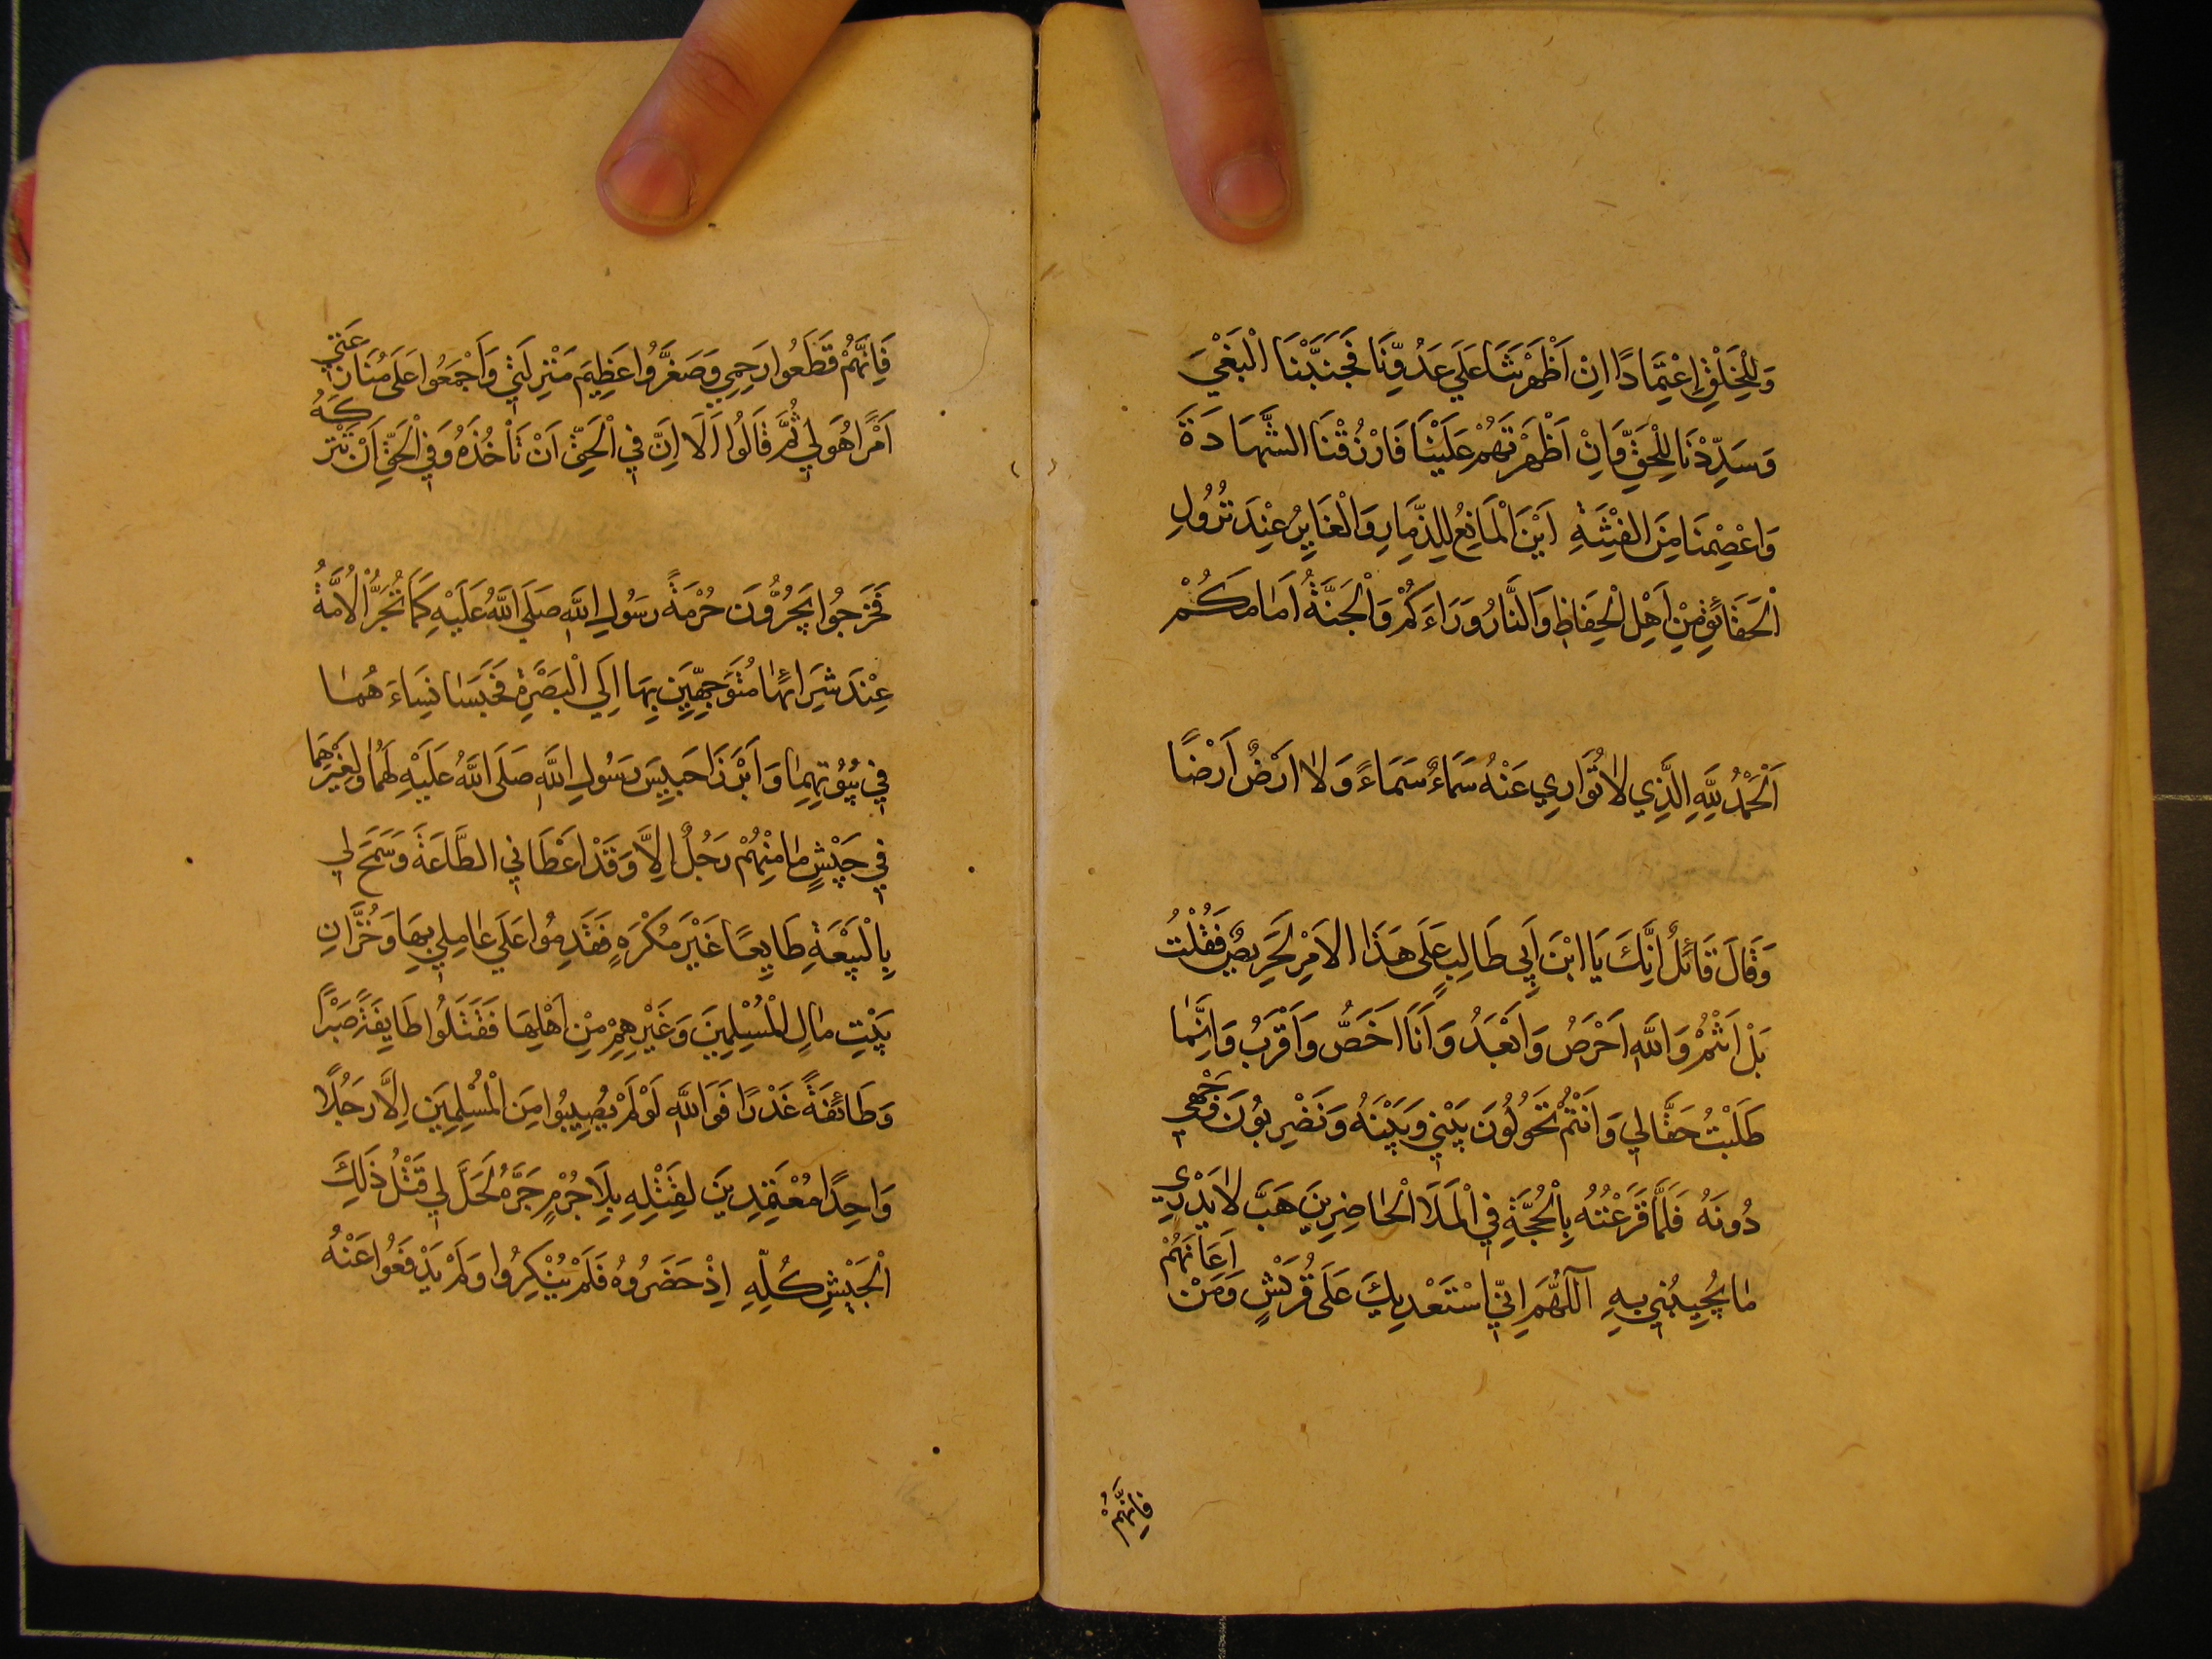 وَلِلْخَلْقِ اِعْتِمَادًا اِنْ اَظْهَرْتَنَا عَلَي عَدُوِّنَا فَجَنِّبْنَا الْبَغْيَ
وَسَدِّدْنَا لِلْحَقِّ وَاِنْ اَظْهَرْتَهُمْ عَلَيْنَا فَارْزُقْنَا الشَّهَادَةَ
وَاعْصِمْنَا مِنَ الفِتْنَةِ اَيْنَ الْمَانِعُ لِلذِّمَارِ وَالْغَايِرُ عِنْدَ نُزُولِ
الْحَقَائِقِ مِنْ اَهْلِ الْحِفَاظِ وَالنَّارُ وَرَاءَكُمْ وَالْجَنَّةُ اَمَامَكُمْ
اَلْحَمْدُ لِلّٰهِ الَّذِي لَا تُوَارِي عَنْهُ سَمَاءٌ سَمَاءً وَلَا اَرْضٌ اَرْضًا
وَقَالَ قَائِلٌ اِنَّكَ يَا ابْنَ اَبِي طَالِبٍ عَلَى هَذَا الاَمْرِ لَحَرِيصٌ فَقُلْتُ
بَلْ اَنْتُمْ وَاللّٰهِ اَحْرَصُ وَاَبْعَدُ وَاَنَا اَخَصُّ وَاَقْرَبُ وَاِنَّمَا
طَلَبْتُ حَقًّا لِي وَاَنْتُمْ تَحُولُونَ بَيْنِي وَبَيْنَهُ وَتَضْرِبُونَ وَجْهِي
دُونَهُ فَلَمَّا قَرَعْتُهُ بِالْحُجَّةِ فِي الْمَلَا الْحَاضِرِينَ هَبَّ لَا يَدْرِي
مَا يُجِيبُنِي بِهِ اَللّٰهُمَّ اِنِّي اسْتَعْدِيكَ عَلَى قُرَيْشٍ وَمَنْ اَعَانَهُمْ
فَاِنَّهُمْ
فَاِنَّهُمْ قَطَعُوا رَحِمِي وَصَغَّرُوا عَظِيمَ مَنْزِلَتِي وَاَجْمَعُوا عَلَى مُنَازَعَتِي
اَمْرًا هُوَ لِي ثُمَّ قَالُوا اَلَا اِنَّ فِي الْحَقِّ اَنْ تَاْخُذَهُ وَفِي الْحَقِّ اَنْ تَتْرُكَهُ
فَخَرَجُوا يَجُرُّونَ حُرْمَةَ رَسُولِ اللّٰهِ صَلَى اللّٰهُ عَلَيْهِ كَمَا تُجَرُّ الْاُمَّةُ
عِنْدَ شِرَائِهَا مُتَوَجِّهِيْنَ بِهَا اِلَى الْبَصْرَةِ فَحَبَسَا نِسَاءَ هُمَا
فِي بُيُوتِهِمَا وَاَبْرَزَا حَبِيسَ رَسُولِ اللّٰهِ صَلَى اللّٰهُ عَلَيْهِ لَهُمَا وَلِغَيْرِهِمَا
فِي جَيْشٍ مَا مِنْهُمْ رَجُلٌ اِلَّا وَقَدْ اَعْطَانِي الطَّاعَةَ وَسَمَحَ لِي
بِالْبَيْعَةِ طَايِعًا غَيْرَ مُكْرَهٍ فَقَدِمُوا عَلَي عَامِلِي بِهَا وَخُزَّانِ
بَيْتِ مَالِ الْمُسْلِمِينَ وَغَيْرِهِمْ مِنْ اَهْلِهَا فَقَتَلُوا طَايِفَةً صَبْرًا
وَطَائِفَةً غَدْرًا فَوَاللّٰهِ لَوْ لَمْ يُصِيبُوا مِنَ الْمُسْلِمِينَ اِلَّا رَجُلًا
وَاحِدًا مُعْتَمِدِينَ لِقَتْلِهِ بِلَا جُرْمٍ جَرَّهُ لَحَلَّ لِي قَتْلُ ذَلِكَ
الْجَيْشِ كُلِّهِ اِذْ حَضَرُوهُ فَلَمْ يُنْكِرُوا وَلَمْ يَدْفَعُوا عَنْهُ